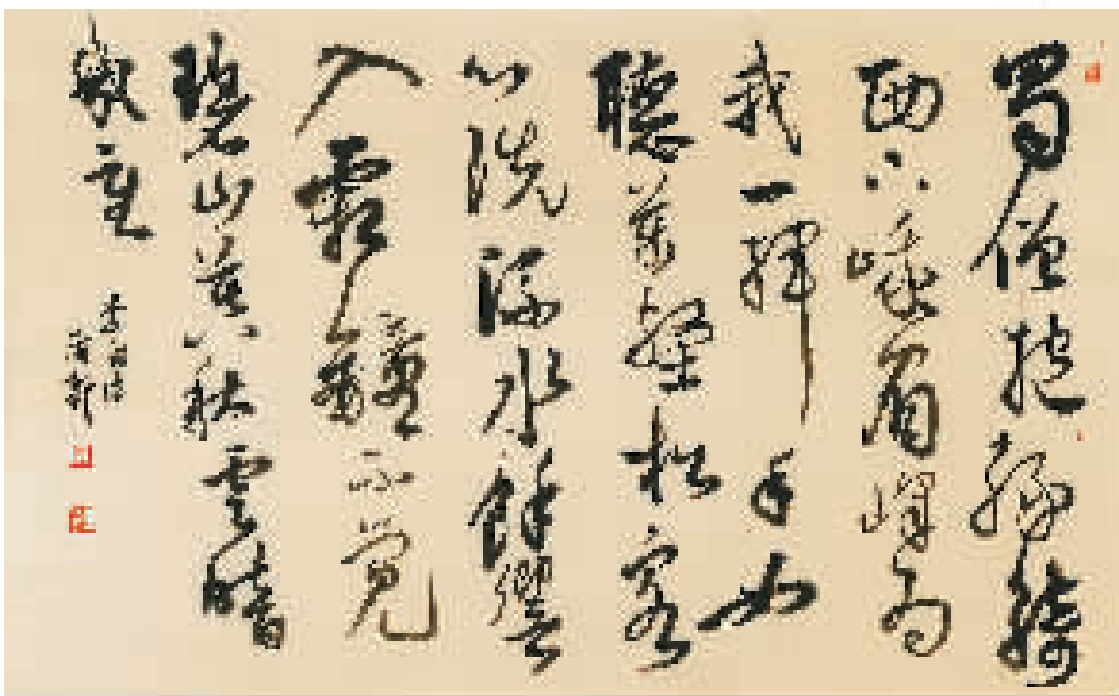 蜀僧抱綠綺
西下峨眉峰为
我一揮手如
聽萬壑松客
心洗流水餘響
入霜鐘不觉
碧山暮秋雲暗
幾重
李白诗